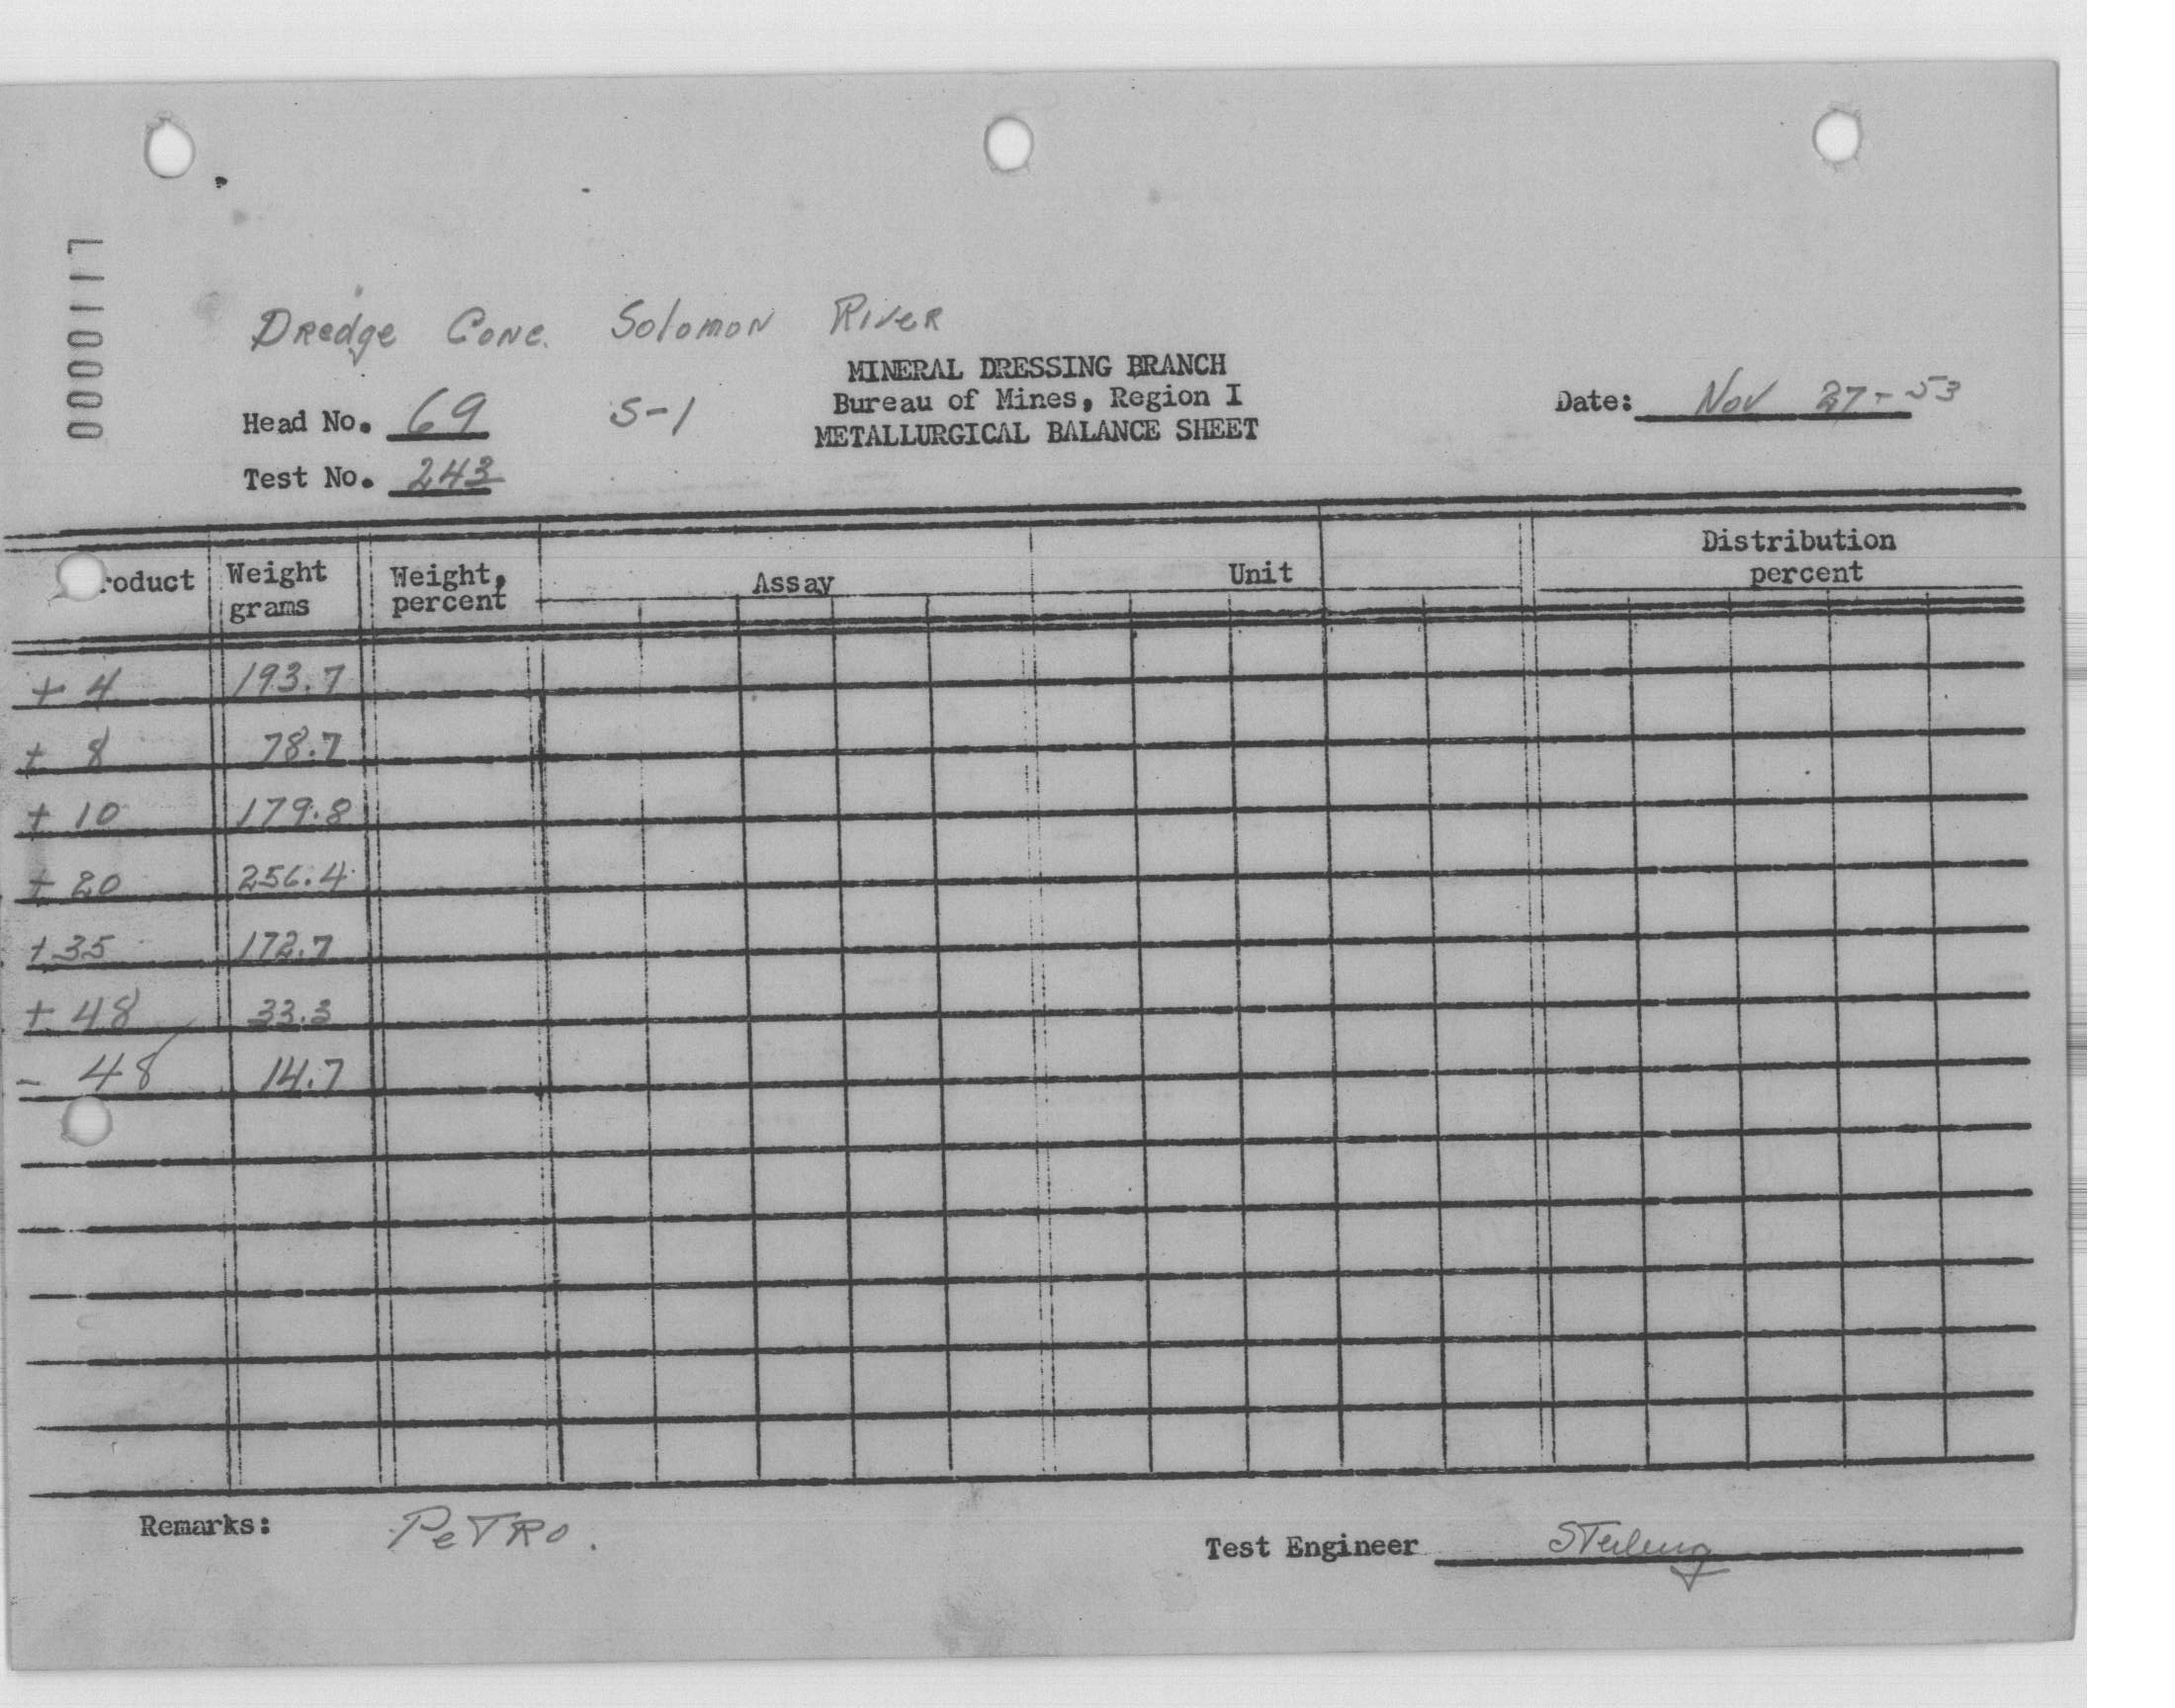 L110000
Dredge Conc. Solomon River
MINERAL DRESSING BRANCH
Bureau of Mines, Region I
METALLURGICAL BALANCE SHEET
Head No. 69 S-1
Date: Nov 27-53
Test No. 243
roduct Weight grams Weight, percent Assay Unit Distribution percent
+ 4 193.7
+ 8 78.7
+ 10 179.8
+ 20 256.4
+ 35 172.7
+ 48 33.3
- 48 14.7
Remarks: PeTRo.
Test Engineer Sterling